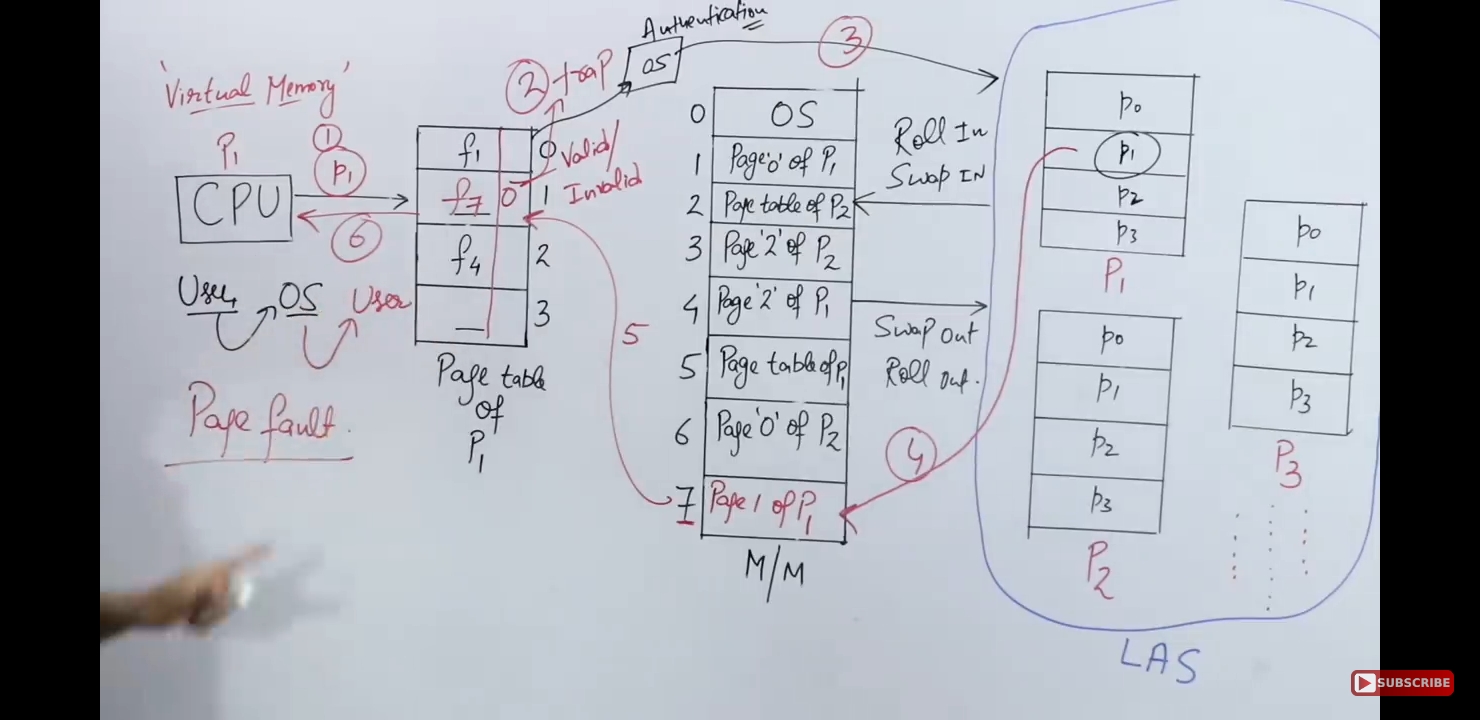 'Virtual Memory'
P1
①
p1
CPU
⑥
User OS User
Page fault.
② trap
Authentication
OS
③
Valid/
Invalid
f1 0
f7 0 1
f4 2
— 3
Page table
of
P1
5
0 OS
1 Page '0' of P1
2 Page table of P2
3 Page '2' of P2
4 Page '2' of P1
5 Page table of P1
6 Page '0' of P2
7 Page 1 of P1
M/M
Roll In
Swap IN
Swap Out
Roll Out.
④
p0
p1
p2
p3
P1
p0
p1
p2
p3
P2
p0
p1
p2
p3
P3
LAS
SUBSCRIBE